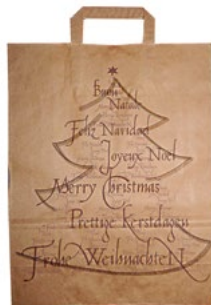 Buon
Natale
Feliz Navidad
Joyeux Noël
Merry Christmas
Prettige Kerstdagen
Frohe Weihnachten